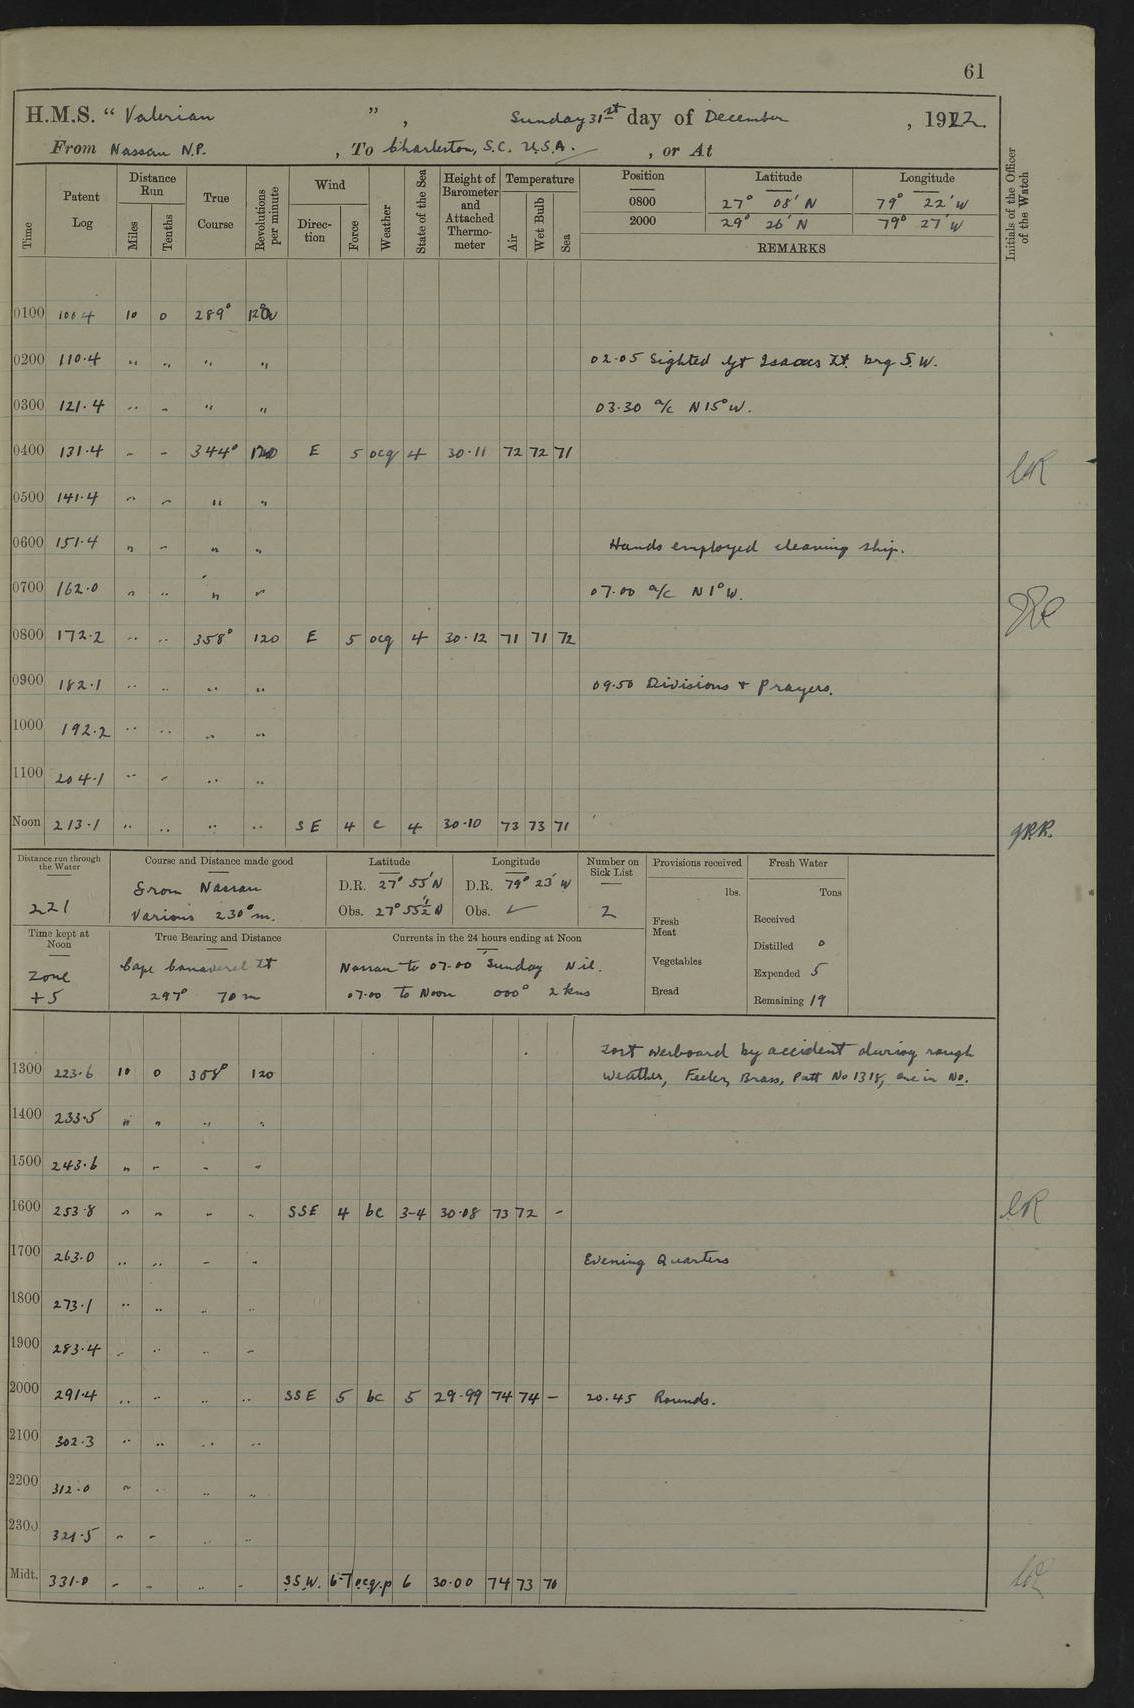 61
H.M.S. “ Valerian ” , Sunday 31st day of December , 1922.
From Nassau N.P. , To Charleston, S.C. U.S.A. , or At
Time Patent Log Distance Run Miles Tenths True Course Revolutions per minute Wind Direction Force Weather State of the Sea Height of Barometer and Attached Thermometer Temperature Air Wet Bulb Sea Position Latitude Longitude Initials of the Officer of the Watch
0800 27° 08' N 79° 22' W
2000 29° 26' N 79° 27' W
REMARKS
0100 100.4 10 0 289° 120
0200 110.4 " " " " 02.05 Sighted Gt Isaacs Lt. brg S.W.
0300 121.4 " " " " 03.30 a/c N15°W.
0400 131.4 " " 344° 120 E 5 ocq 4 30.11 72 72 71
0500 141.4 " " " "
0600 151.4 " " " " Hands employed cleaning ship.
0700 162.0 " " " " 07.00 a/c N1°W.
0800 172.2 " " 358° 120 E 5 ocq 4 30.12 71 71 72
0900 182.1 " " " " 09.50 Divisions + Prayers.
1000 192.2 " " " "
1100 204.1 " " " "
Noon 213.1 " " " " SE 4 c 4 30.10 73 73 71
Distance run through the Water Course and Distance made good Latitude Longitude Number on Sick List Provisions received Fresh Water
From Nassau D.R. 27° 55' N D.R. 79° 23' W lbs. Tons
221 Various 230° m. Obs. 27° 55½' N Obs. ✓ 2 Fresh Meat Received
Time kept at Noon True Bearing and Distance Currents in the 24 hours ending at Noon Distilled 0
Zone Cape Canaveral Lt Nassau to 07.00 Sunday Nil. Vegetables Expended 5
+5 297° 70 m 07.00 to Noon 000° 2 kns Bread Remaining 19
Lost overboard by accident during rough
1300 223.6 10 0 358° 120 weather, Feeler, Brass, Patt No 1318, one in No.
1400 233.5 " " " "
1500 243.6 " " " "
1600 253.8 " " " " SSE 4 bc 3-4 30.08 73 72 -
1700 263.0 " " " " Evening Quarters
1800 273.1 " " " "
1900 283.4 " " " "
2000 291.4 " " " " SSE 5 bc 5 29.99 74 74 - 20.45 Rounds.
2100 302.3 " " " "
2200 312.0 " " " "
2300 321.5 " " " "
Midt. 331.0 " " " " SSW. 6-7 ocq.p 6 30.00 74 73 70